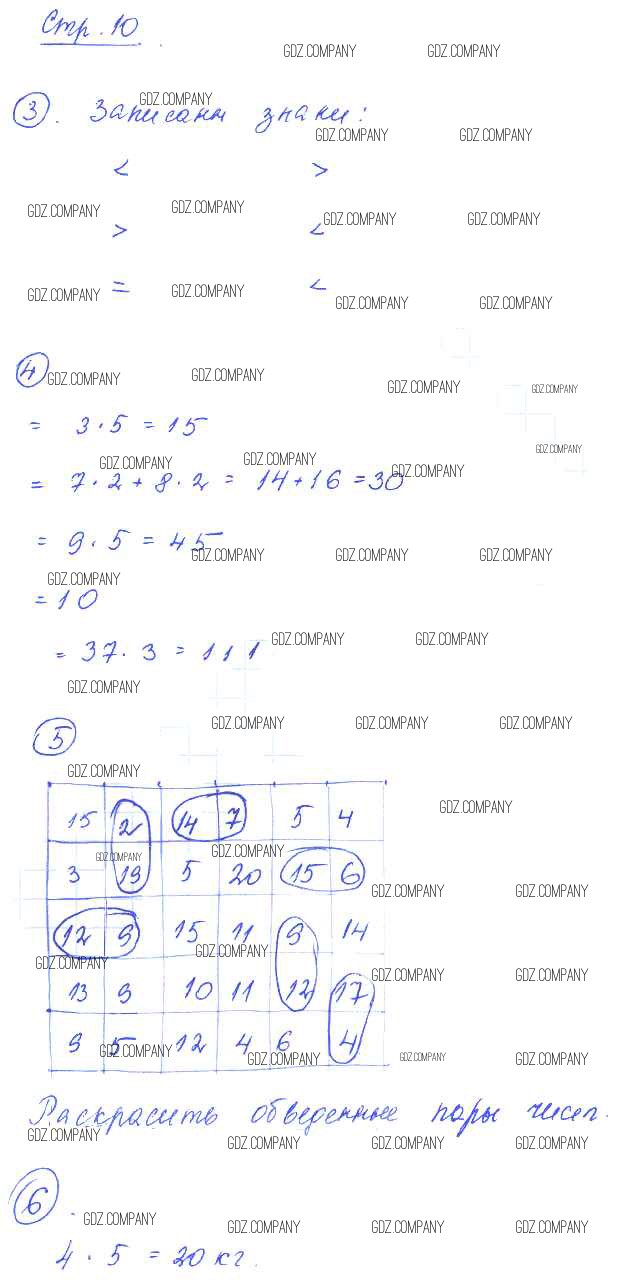 Стр. 10
3. Записаны знаки:
< >
> <
= <
4
= 3 · 5 = 15
= 7 · 2 + 8 · 2 = 14 + 16 = 30
= 9 · 5 = 45
= 10
= 37 · 3 = 111
5
15 2 14 7 5 4
3 19 5 20 15 6
12 9 15 11 9 14
13 9 10 11 12 17
9 5 12 4 6 4
Раскрасить обведенные пары чисел.
6.
4 · 5 = 20 кг.
GDZ.COMPANY